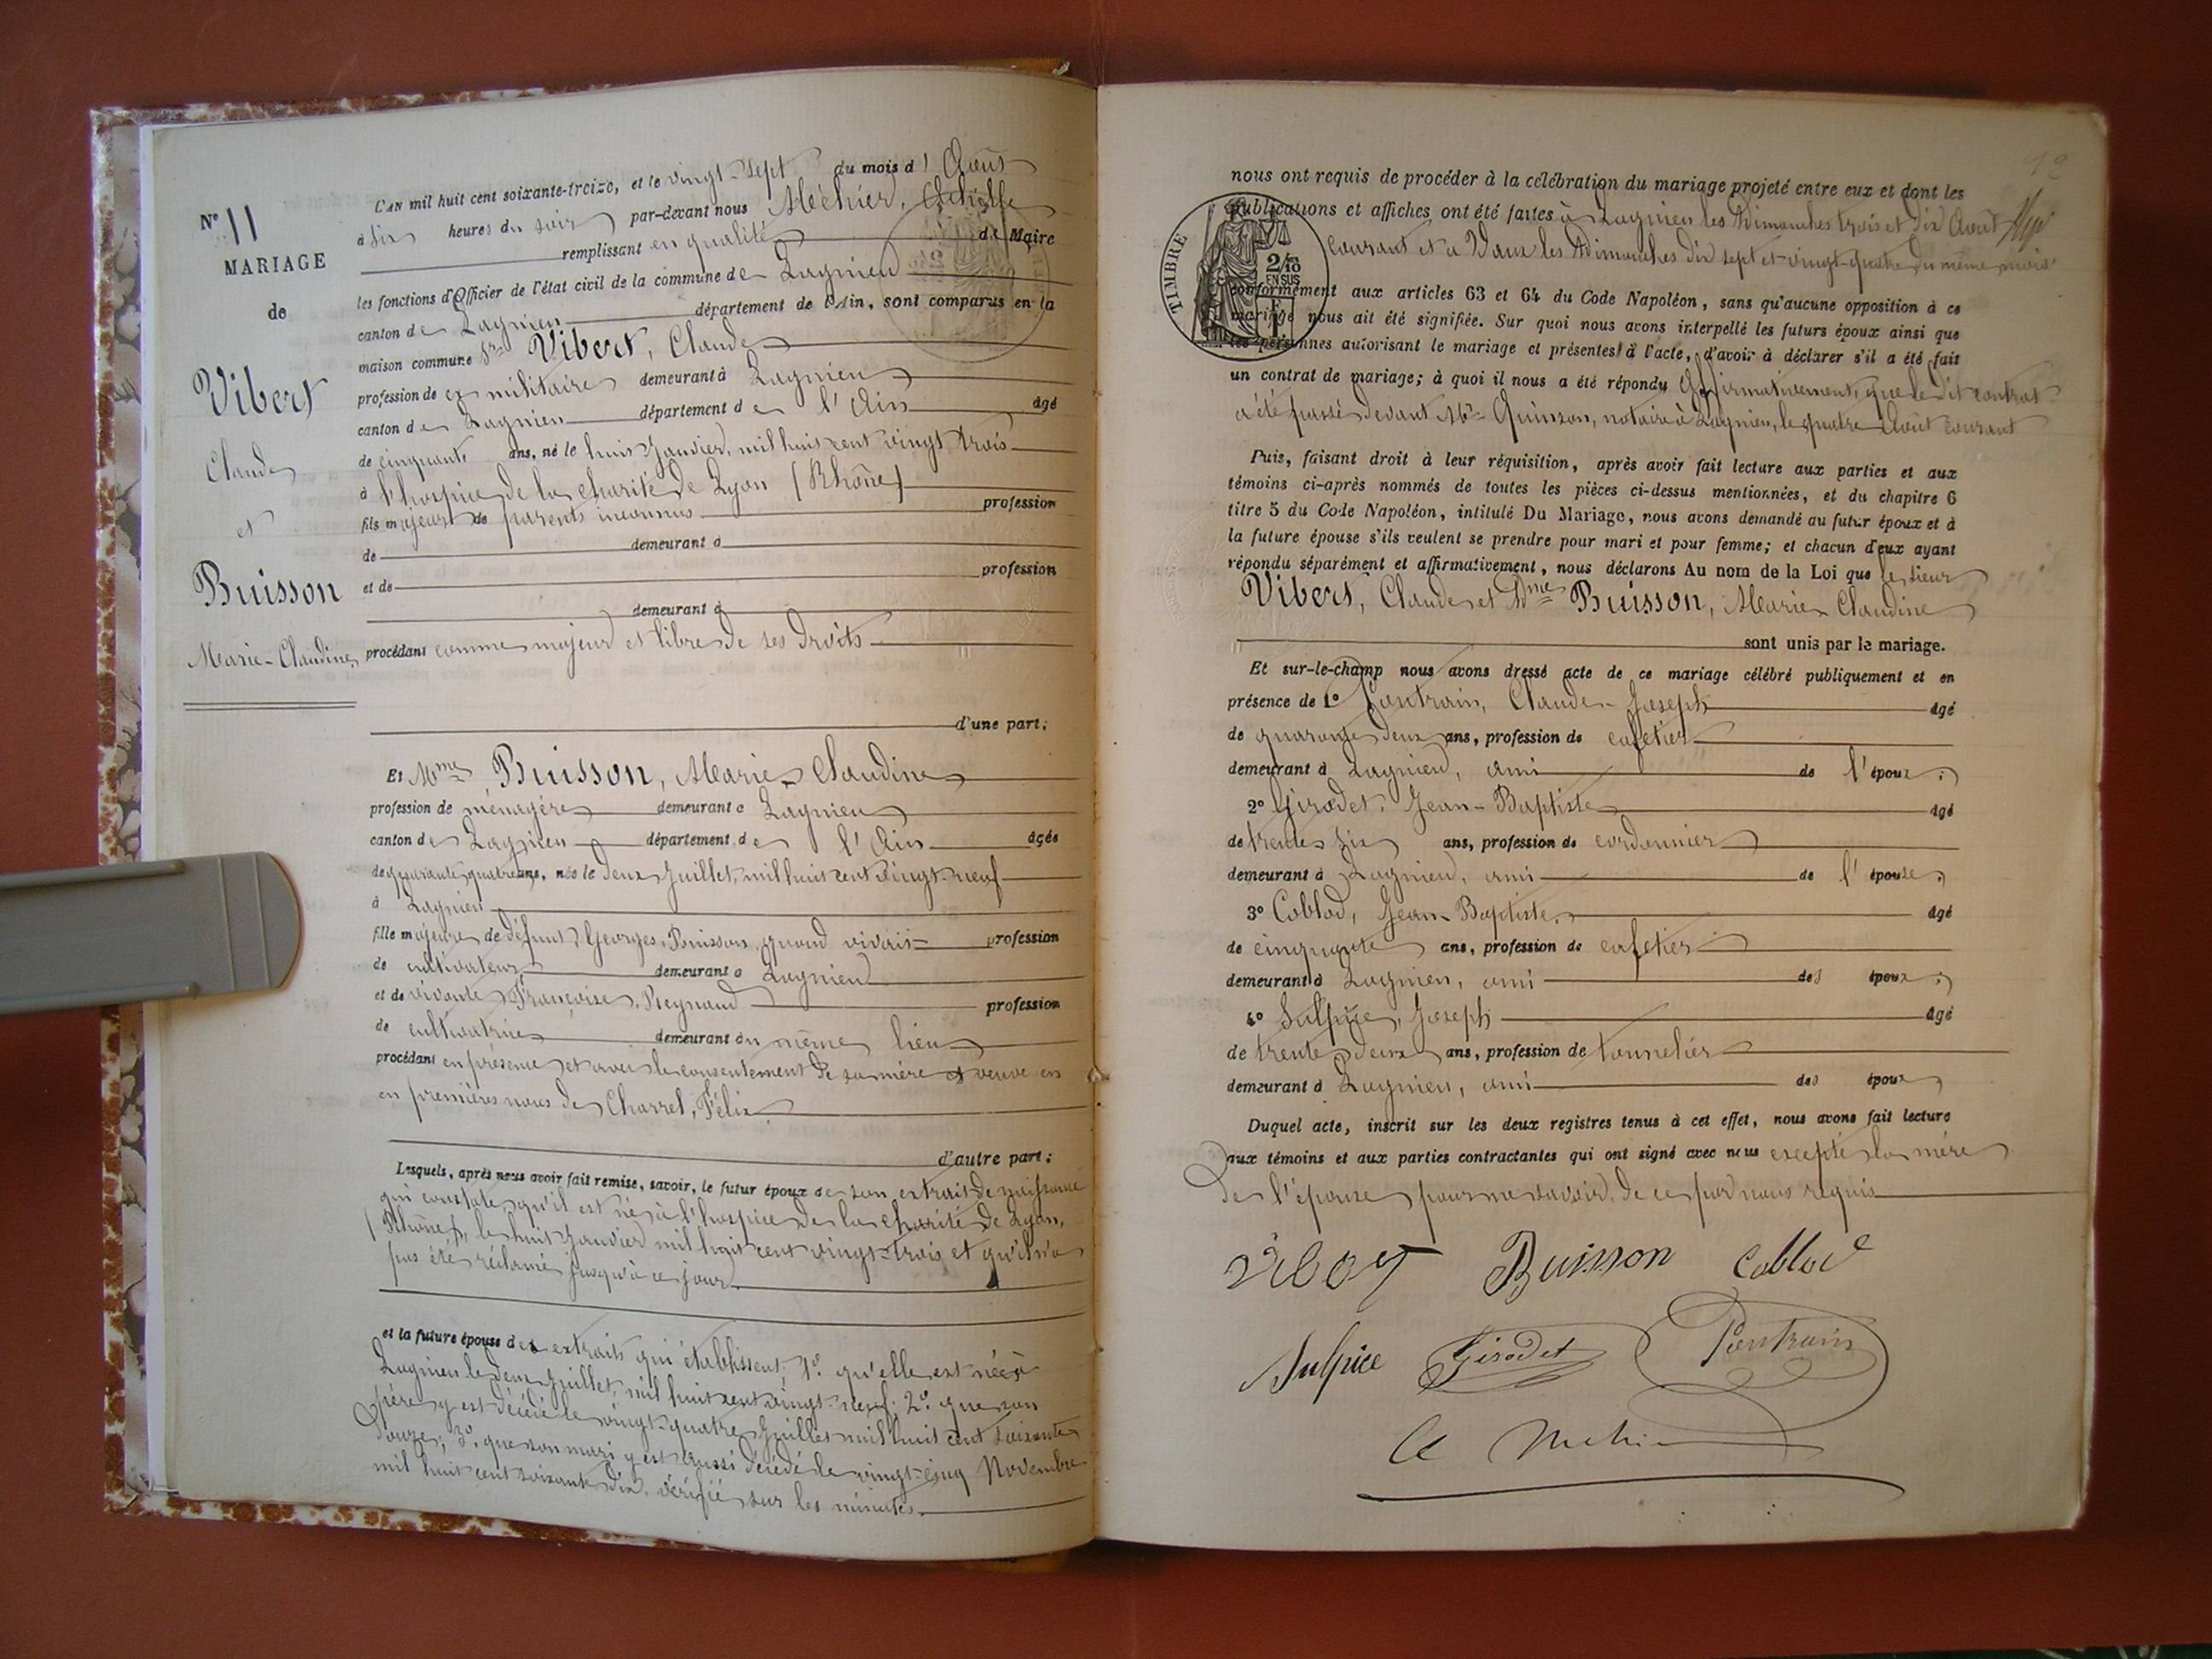 N° 11
MARIAGE
de
Vibert
Claude
et
Buisson
Marie-Claudine
L'AN mil huit cent soixante-treize, et le vingt-sept du mois d'Août
à six heures du soir par-devant nous Méhier, Achille
remplissant en qualité de Maire
les fonctions d'Officier de l'état civil de la commune de Lagnieu
canton de Lagnieu département de l'Ain, sont comparus en la
maison commune Sr Vibert, Claude
profession de ex militaire demeurant à Lagnieu
canton de Lagnieu département de l'Ain âgé
de cinquante ans, né le huit Janvier, mil huit cent vingt trois
à l'hospice de la charité de Lyon (Rhône)
fils majeur de parents inconnus profession
de demeurant à
et de profession
demeurant à
procédant comme majeur et libre de ses droits
d'une part;
Et Mme Buisson, Marie-Claudine
profession de ménagère demeurant à Lagnieu
canton de Lagnieu département de l'Ain âgée
de quarante quatre ans, née le deux Juillet, mil huit cent vingt-neuf
à Lagnieu
fille majeure de défunt Georges, Buisson quand vivait profession
de cultivateur demeurant à Lagnieu
et de vivante Françoise, Reynaud profession
de cultivatrice demeurant au même lieu
procédant en présence et avec le consentement de sa mère et veuve en
en premières noces de Charrel, Félix
d'autre part;
Lesquels, après nous avoir fait remise, savoir, le futur époux de son extrait de naissance
qui constate qu'il est né à l'hospice de la charité de Lyon,
(Rhône), le huit Janvier mil huit cent vingt-trois et qu'il n'a
pas été réclamé jusqu'à ce jour
et la future épouse des extraits qui établissent, 1° qu'elle est née à
Lagnieu le deux Juillet, mil huit cent vingt-neuf; 2° que son
père y est décédé le vingt-quatre Juillet mil huit cent soixante
douze; 3° que son mari y est aussi décédé le vingt-cinq Novembre
mil huit cent soixante dix, vérifié sur les minutes.
12
nous ont requis de procéder à la célébration du mariage projeté entre eux et dont les
publications et affiches ont été faites à Lagnieu les Dimanches trois et dix Août
courant et à Vaux les Dimanches dix sept et vingt-quatre du même mois
TIMBRE
2/10
EN SUS
conformément aux articles 63 et 64 du Code Napoléon, sans qu'aucune opposition à ce
mariage nous ait été signifiée. Sur quoi nous avons interpellé les futurs époux ainsi que
les personnes autorisant le mariage et présentes à l'acte, d'avoir à déclarer s'il a été fait
un contrat de mariage; à quoi il nous a été répondu affirmativement, que le dit contrat
a été passé devant Me Quinson, notaire à Lagnieu, le quatre Août courant
Puis, faisant droit à leur réquisition, après avoir fait lecture aux parties et aux
témoins ci-après nommés de toutes les pièces ci-dessus mentionnées, et du chapitre 6
titre 5 du Code Napoléon, intitulé Du Mariage, nous avons demandé au futur époux et à
la future épouse s'ils veulent se prendre pour mari et pour femme; et chacun d'eux ayant
répondu séparément et affirmativement, nous déclarons Au nom de la Loi que le sieur
Vibert, Claude et Dme Buisson, Marie-Claudine
sont unis par le mariage.
Et sur-le-champ nous avons dressé acte de ce mariage célébré publiquement et en
présence de 1° Pontrain, Claude-Joseph âgé
de quarante deux ans, profession de cafetier
demeurant à Lagnieu, ami de l'époux;
2° Girodet, Jean-Baptiste âgé
de trente six ans, profession de cordonnier
demeurant à Lagnieu, ami de l'épouse;
3° Coblod, Jean-Baptiste, âgé
de cinquante ans, profession de cafetier
demeurant à Lagnieu, ami des époux;
4° Sulpice, Joseph âgé
de trente deux ans, profession de tonnelier
demeurant à Lagnieu, ami des époux
Duquel acte, inscrit sur les deux registres tenus à cet effet, nous avons fait lecture
aux témoins et aux parties contractantes qui ont signé avec nous excepté la mère
de l'épouse pour ne savoir, de ce par nous requis
Vibert Buisson Coblod
Sulpice Girodet Pontrain
A Mehier